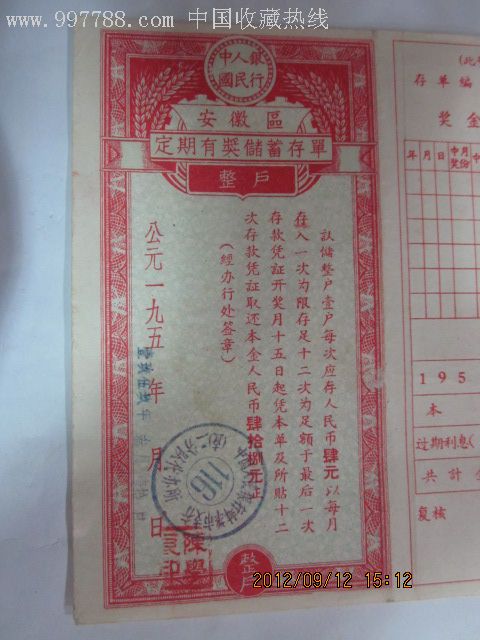 www.997788.com 中国收藏热线
中人銀
國民行
安徽區
定期有奬儲蓄存單
整戶
認儲整戶壹戶每次應存人民币肆元以每月
存入一次为限存足十二次为足額于最后一次
存款凭証开奖月十五日起凭本单及所貼十二
次存款凭証取还本金人民币肆拾捌元正
(經办行处签章)
公元一九五年月日
116
整戶
(此
存單編
奖金
年月日
中月
奖份
中
195
本
过期利息(
共計金
复核
2012/09/12 15:12